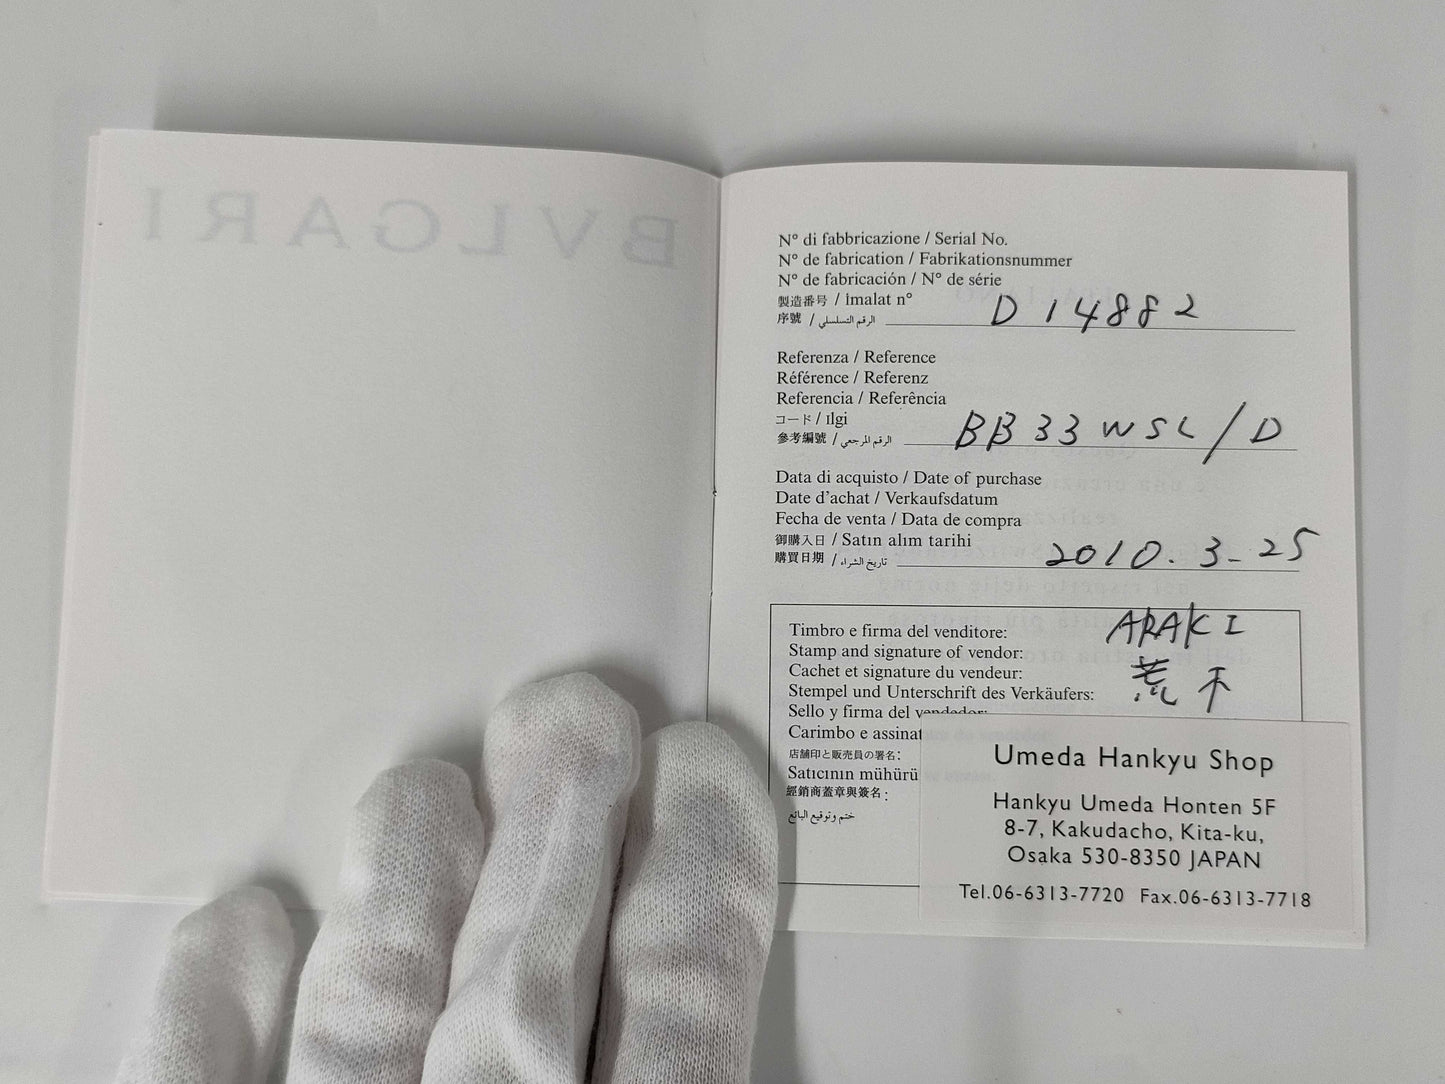 BVLGARI
N° di fabbricazione / Serial No.
N° de fabrication / Fabrikationsnummer
N° de fabricación / N° de série
製造番号 / İmalat n°
序號 / الرقم التسلسلي D14882
Referenza / Reference
Référence / Referenz
Referencia / Referência
コード / Ilgi
參考編號 / الرقم المرجعي BB33WSL/D
Data di acquisto / Date of purchase
Date d'achat / Verkaufsdatum
Fecha de venta / Data de compra
御購入日 / Satın alım tarihi
購買日期 / تاريخ الشراء 2010.3-25
Timbro e firma del venditore: ARAKI
Stamp and signature of vendor:
Cachet et signature du vendeur: 荒木
Stempel und Unterschrift des Verkäufers:
Sello y firma del vendedor:
Carimbo e assinat
店舗印と販売員の署名:
Satıcının mühürü
經銷商蓋章與簽名:
ختم وتوقيع البائع
Umeda Hankyu Shop
Hankyu Umeda Honten 5F
8-7, Kakudacho, Kita-ku,
Osaka 530-8350 JAPAN
Tel.06-6313-7720 Fax.06-6313-7718